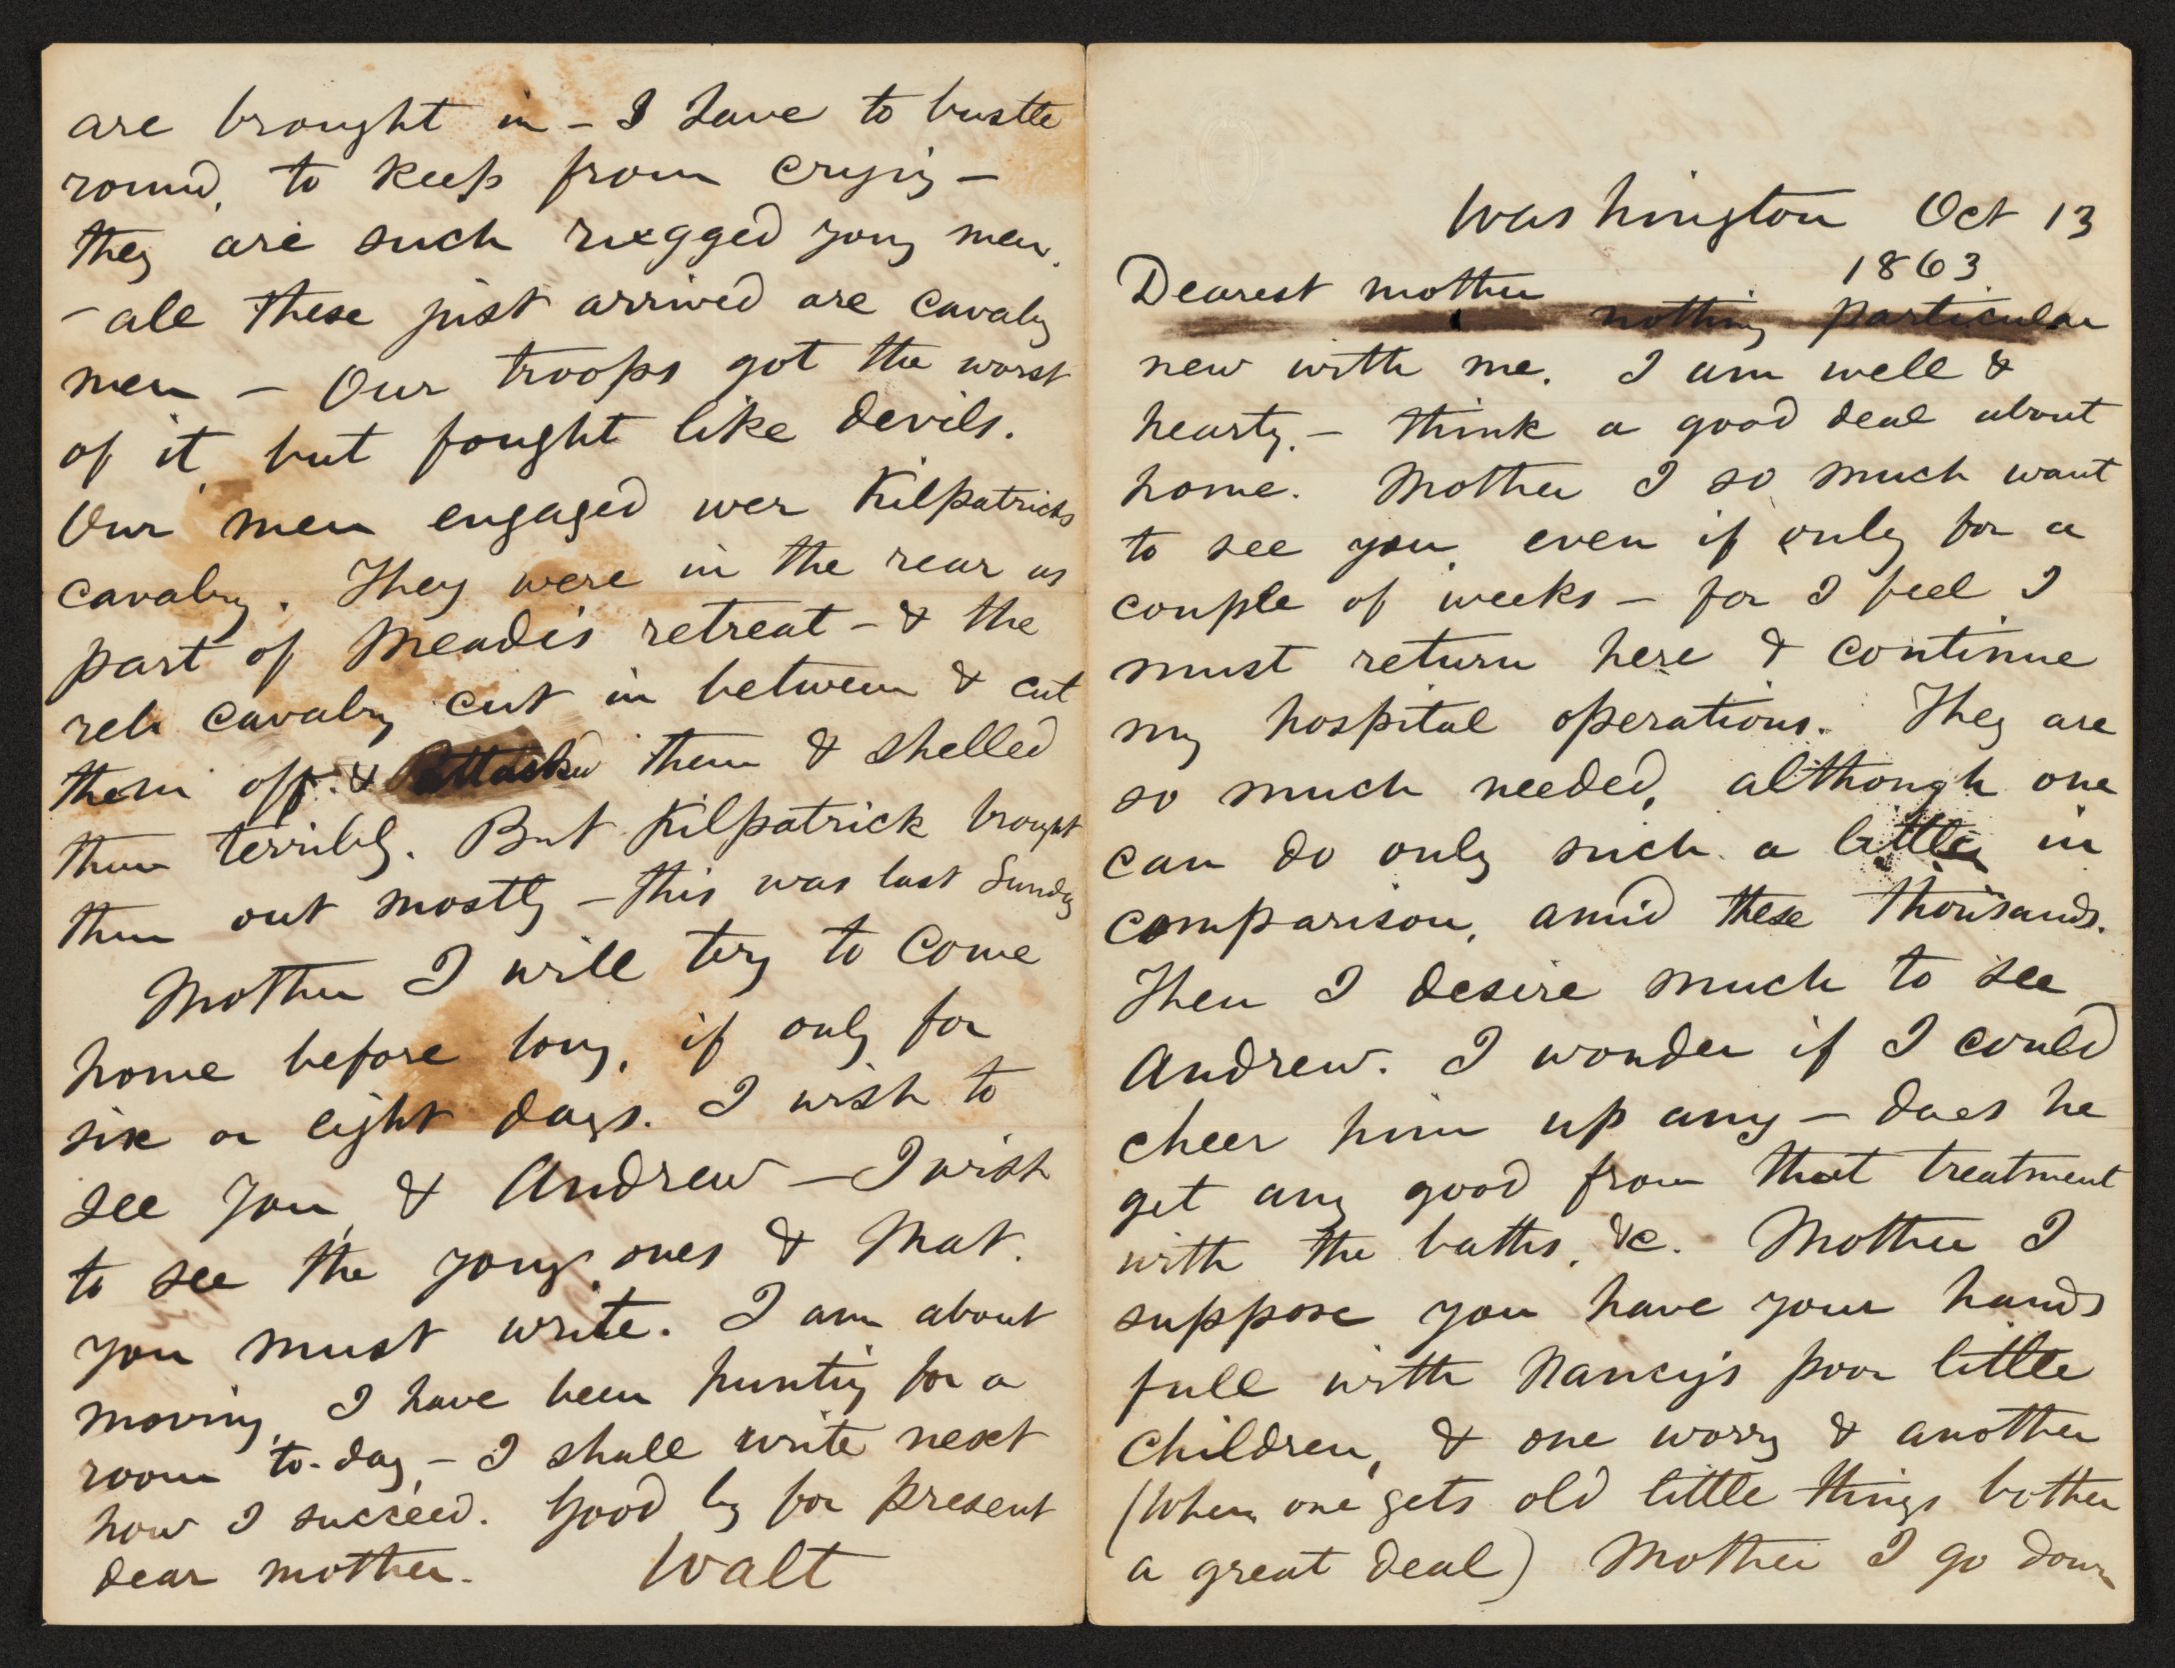 Washington Oct 13
1863
Dearest mother
nothing particular
new with me. I am well &
hearty. – think a good deal about
home. Mother I so much want
to see you, even if only for a
couple of weeks – for I feel I
must return here & continue
my hospital operations. They are
so much needed, although one
can do only such a little in
comparison, amid these thousands.
Then I desire much to see
Andrew. I wonder if I could
cheer him up any – does he
get any good from that treatment
with the baths, &c. Mother I
suppose you have your hands
full with Nancy's poor little
children, & one worry & another
(when one gets old little things bother
a great deal) Mother I go down
are brought in – I have to bustle
round, to keep from crying –
they are such rugged young men.
– all these just arrived are cavalry
men – Our troops got the worst
of it, but fought like devils.
Our men engaged wer Kilpatricks
cavalry. They were in the rear as
part of Meade's retreat – & the
reb cavalry cut in between & cut
them off & attacked them & shelled
them terribly. But Kilpatrick brought
them out mostly – this was last Sunday
Mother I will try to come
home before long, if only for
six or eight days. I wish to
see you, & Andrew – I wish
to see the young ones & Mat.
you must write. I am about
moving, I have been hunting for a
room to-day, – I shall write next
how I succeed. Good by for present
dear mother. Walt